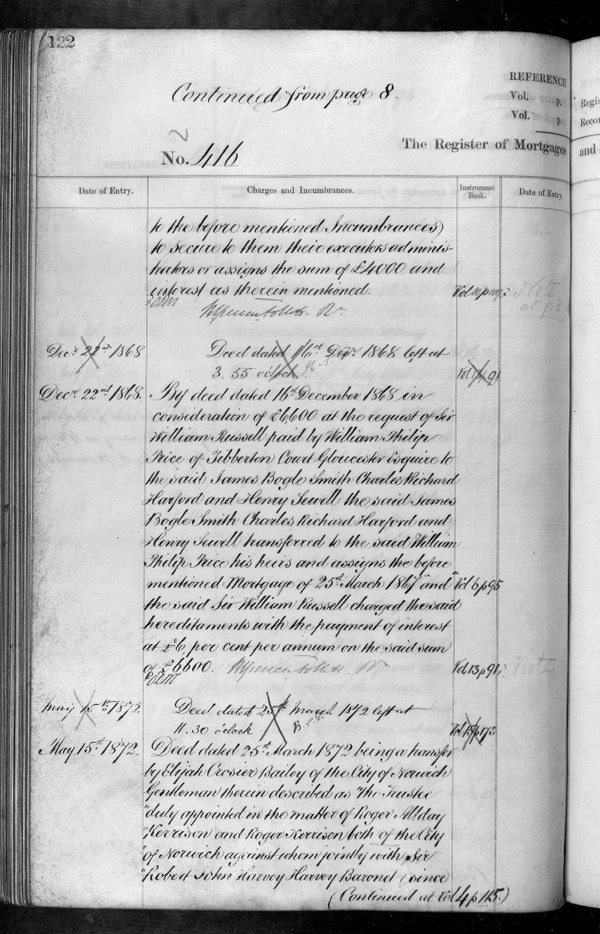 122
Continued from page 8.
REFERENCE
Vol. p.
Vol. p.
No. 416
2
The Register of Mortgages
Regis
Recor
and
Date of Entry.
Charges and Incumbrances.
Instrument Book.
Date of Entry.
to the before mentioned Incumbrances)
to secure to them their executors adminis-
trators or assigns the sum of £4000 and
interest as therein mentioned.
Decr. 22nd 1868
Deed dated 16th Decr. 1868 left at
3. 55 o'clock
Decr. 22nd 1868.
By deed dated 16th December 1868 in
consideration of £6600 at the request of Sir
William Russell paid by William Philip
Price of Tibberton Court Gloucester Esquire to
the said James Bogle Smith Charles Richard
Harford and Henry Sewell the said James
Bogle Smith Charles Richard Harford and
Henry Sewell transferred to the said William
Philip Price his heirs and assigns the before
mentioned Mortgage of 25th March 1867 and
Vol 6 p 95
the said Sir William Russell charged the said
hereditaments with the payment of interest
at £6 per cent per annum on the said sum
of £6600.
Vol 13 p 91.
Note
May 15th 1872
Deed dated 25th March 1872 left at
11. 30 o'clock
May 15th 1872.
Deed dated 25th March 1872 being a transfer
by Elijah Crosier Bailey of the City of Norwich
Gentleman therein described as "The Trustee
"duly appointed in the matter of Roger Allday
"Kerrison and Roger Kerrison both of the City
"of Norwich against whom jointly with Sir
"Robert John Harvey Harvey Baronet (since
(Continued at Vol 4 p 115.)